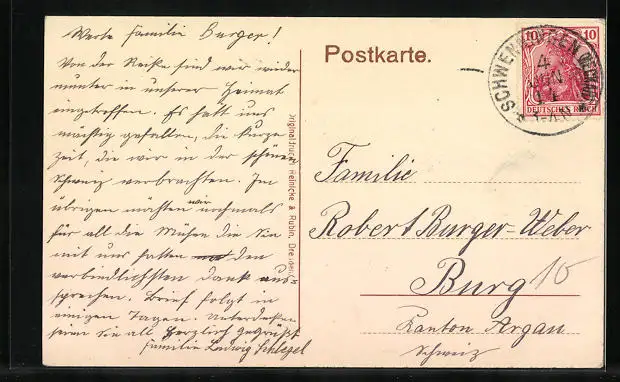 Werte Familie Burger!
Von der Reise sind wir wieder
munter in unserer Heimat
eingetroffen. Es hatt uns
mächtig gefallen, die kurze
Zeit, die wir in der schönen
Schweiz verbrachten. Im
übrigen möchten wir nochmals
für all die Mühe die Sie
mit uns hatten den
verbindlichsten Dank aus
sprechen. Brief folgt in
einigen Tagen. Unterdessen
seien Sie all herzlich gegrüßt
Familie Ludwig Schlegel
Originaldruck Reinicke & Rubin, Dresden
Postkarte.
10 10
DEUTSCHES REICH
SCHWENNINGEN
4
JUN
Familie
Robert Burger-Weber
Burg 10
Kanton Argau
Schweiz